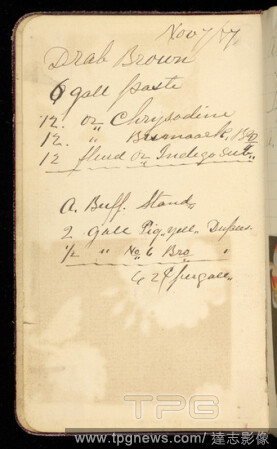 Nov 7/87.
Drab Brown
6 gall paste
12. oz Chrysodine
12. " Bismarck. Bro
12 fluid oz Indego Sub.
A. Buff. Stand.
2 gall Pig. yell.
1/2 " No 6 Bro "
62¢ per gall.
TPG
www.tpgnews.com/達志影像